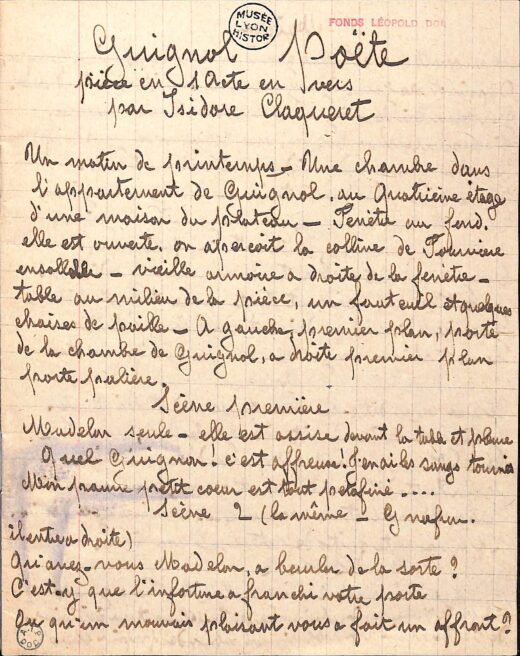 MUSÉE
LYON
HISTOR
FONDS LÉOPOLD DOR
Guignol Poëte
pièce en 1 Acte en vers
par Isidore Claqueret
Un matin de printemps – Une chambre dans
l'appartement de Guignol, au Quatrième étage
d'une maison du plateau – Fenêtre au fond.
elle est ouverte. on aperçoit la colline de Fourvière
ensoleillée – vieille armoire a droite de la fenêtre –
table au milieu de la pièce, un fauteuil et quelques
chaises de paille – A gauche, premier plan, porte
de la chambre de Guignol, a droite premier plan
porte palière.
Scène première
Madelon seule – elle est assise devant la table et pleure
Quel Guignon! c'est affreuse! J'en ai les sangs tournés
Mon pauvre petit coeur est tout petafiné ....
Scène 2 (la même – Gnafron.
il entre a droite)
Qu'avez-vous Madelon, a beurler de la sorte?
C'est-y que l'infortune a franchi votre porte
Ou qu'un mauvais plaisant vous a fait un affront?